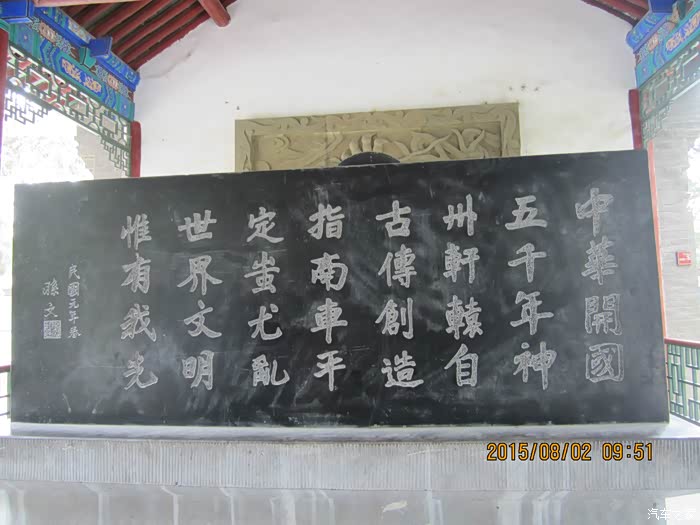 中華開國
五千年神
州軒轅自
古傳創造
指南車平
定蚩尤亂
世界文明
惟有我先
民國元年春
孫文
2015/08/02 09:51
汽车之家